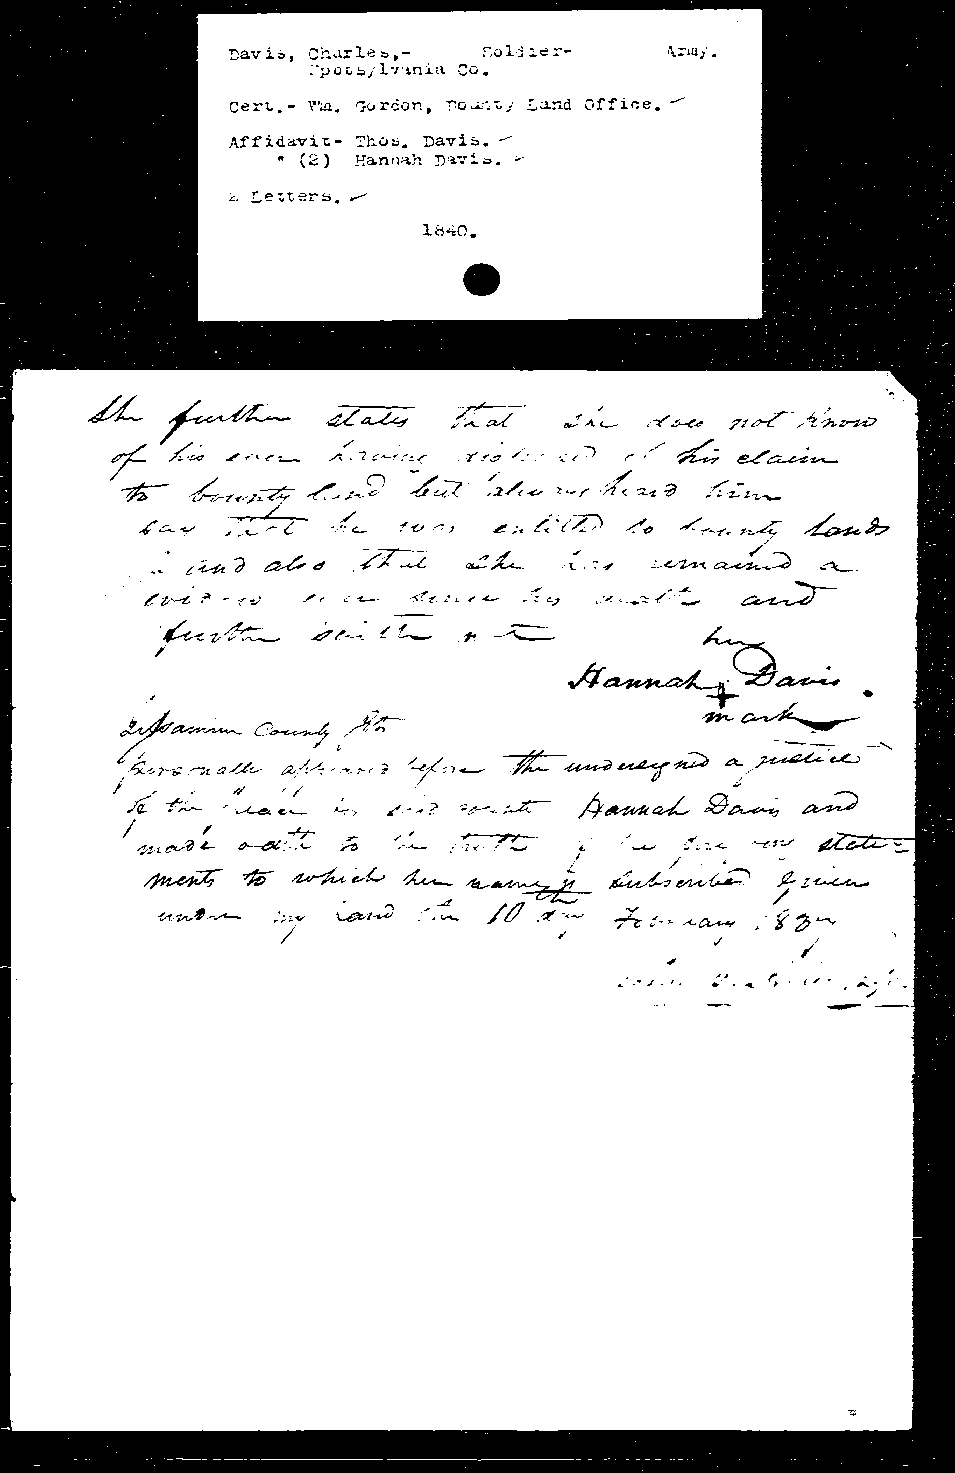 Davis, Charles,- Soldier- Army.
Spotsylvania Co.
Cert.- Wm. Gordon, Bounty Land Office.
Affidavit- Thos. Davis.
" (2) Hannah Davis.
2 Letters.
1840.
She further states that she does not know
of his ever having disposed of his claim
to bounty land but always heard him
say that he was entitled to bounty lands
and also that she has remained a
widow ever since his death and
further saith not
her
Hannah + Davis.
mark
County
personally appeared before the undersigned a justice
of the peace in said county Hannah Davis and
made oath to the truth of the state=
ments to which her name is subscribed Given
under my hand this 10th day February